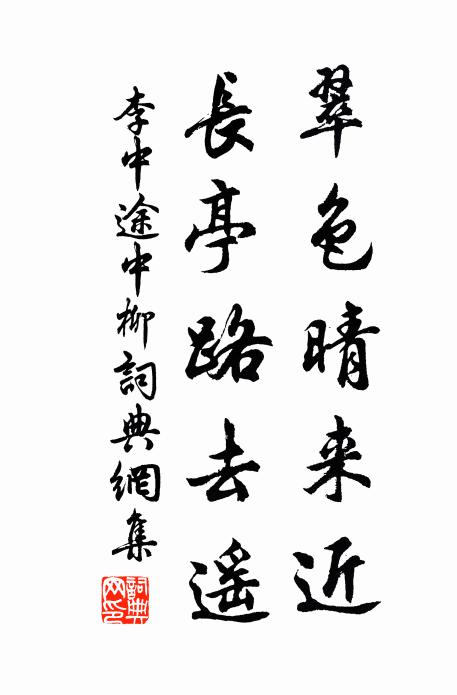 翠色晴来近
長亭路去遥
李中途中柳詞典網集
詞典
网印